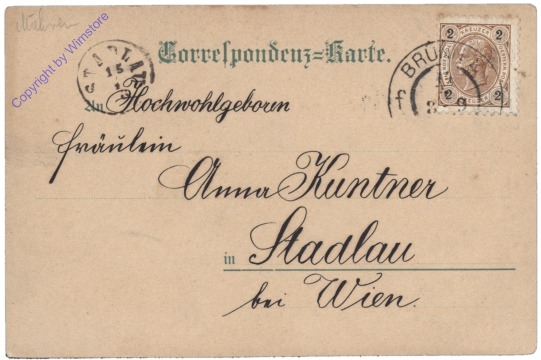 Mähren
Copyright by Wimstore
STADLAU
15
Correspondenz=Karte.
2 KREUZER 2
2 2
BRÜ
An Hochwohlgeboren
Fräulein
Anna Kuntner
in Stadlau
bei Wien.